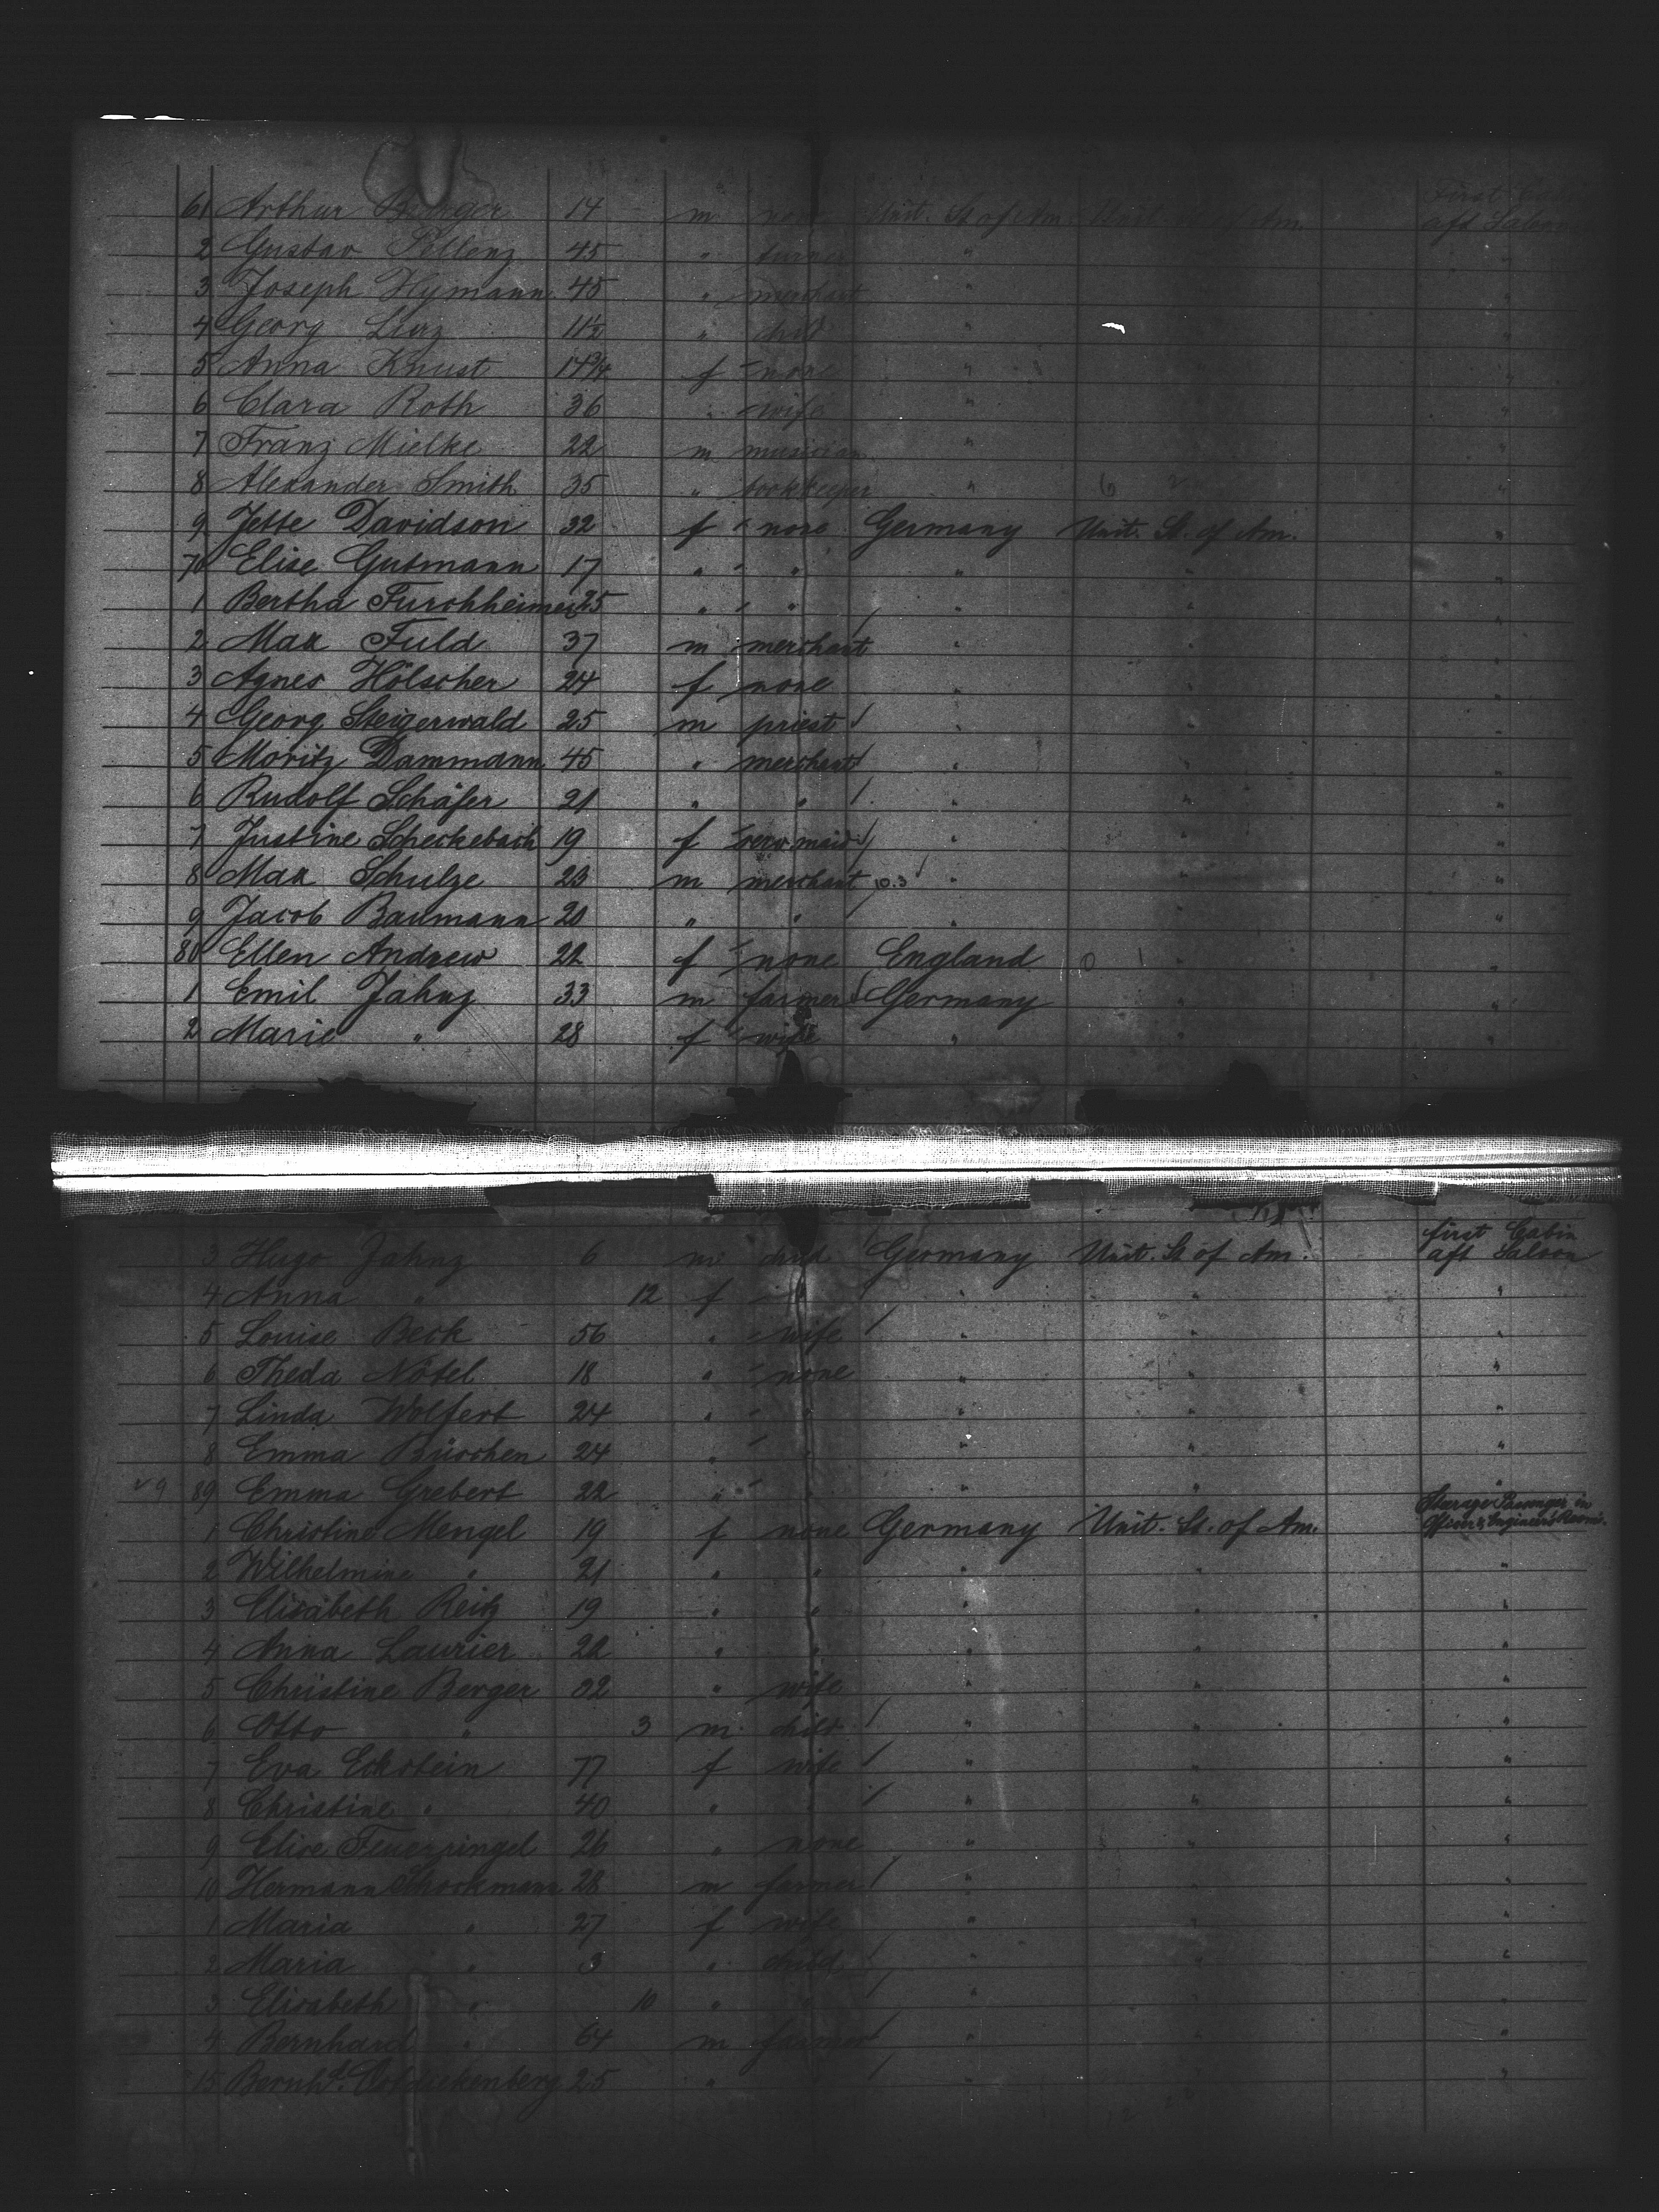 First
61 Arthur 14 m none Unit. St. of Am. Unit. St. of Am. aft Saloon
2 Gustav 45 " "
3 Joseph Hymann 45 " merchant " "
4 Georg 11½ " child " "
5 Anna Knust 14¾ f none " "
6 Clara Roth 36 " wife " "
7 Franz Mielke 22 m musician " "
8 Alexander Smith 35 " bookkeeper " "
9 Jette Davidson 32 f none Germany Unit. St. of Am. "
70 Elise Gutmann 17 " " " " "
1 Bertha Furchheimer 25 " " " " "
2 Max Fuld 37 m merchant " " "
3 Agnes Hölscher 24 f none " " "
4 Georg Steigerwald 25 m priest " " "
5 Moritz Dammann 45 " merchant " " "
6 Rudolf Schäfer 21 " " " " "
7 Justine Scheckebach 19 f serv. maid " " "
8 Max Schulze 23 m merchant 10.3 " " "
9 Jacob Baumann 20 " " " " "
80 Ellen Andrew 22 f none England " "
1 Emil Jahnz 33 m farmer Germany " "
2 Marie " 28 f wife " " "
first Cabin
3 Hugo Jahnz 6 m child Germany Unit. St. of Am. aft Saloon
4 Anna " 12 f " " " "
5 Louise Beck 56 " wife " " "
6 Theda Nötel 18 " none " " "
7 Linda Wolfert 24 " " " " "
8 Emma Büschen 24 " " " " "
89 Emma Grebert 22 " " " " "
Steerage Passenger in
1 Christine Mengel 19 f none Germany Unit. St. of Am. Officer & Engineers Rooms.
2 Wilhelmine " 21 " " " " "
3 Elisabeth Reitz 19 " " " " "
4 Anna Laurier 22 " " " " "
5 Christine Berger 32 " wife " " "
6 Otto " 3 m child " " "
7 Eva Eckstein 77 f wife " " "
8 Christine " 40 " " " " "
9 Elise 26 " none " " "
10 Hermann 28 m farmer " " "
1 Maria " 27 f wife " " "
2 Maria " 3 " child " " "
3 Elisabeth " 10 " " " " "
4 Bernhard " 64 m farmer " " "
15 Bernhd. 25 " " " " "